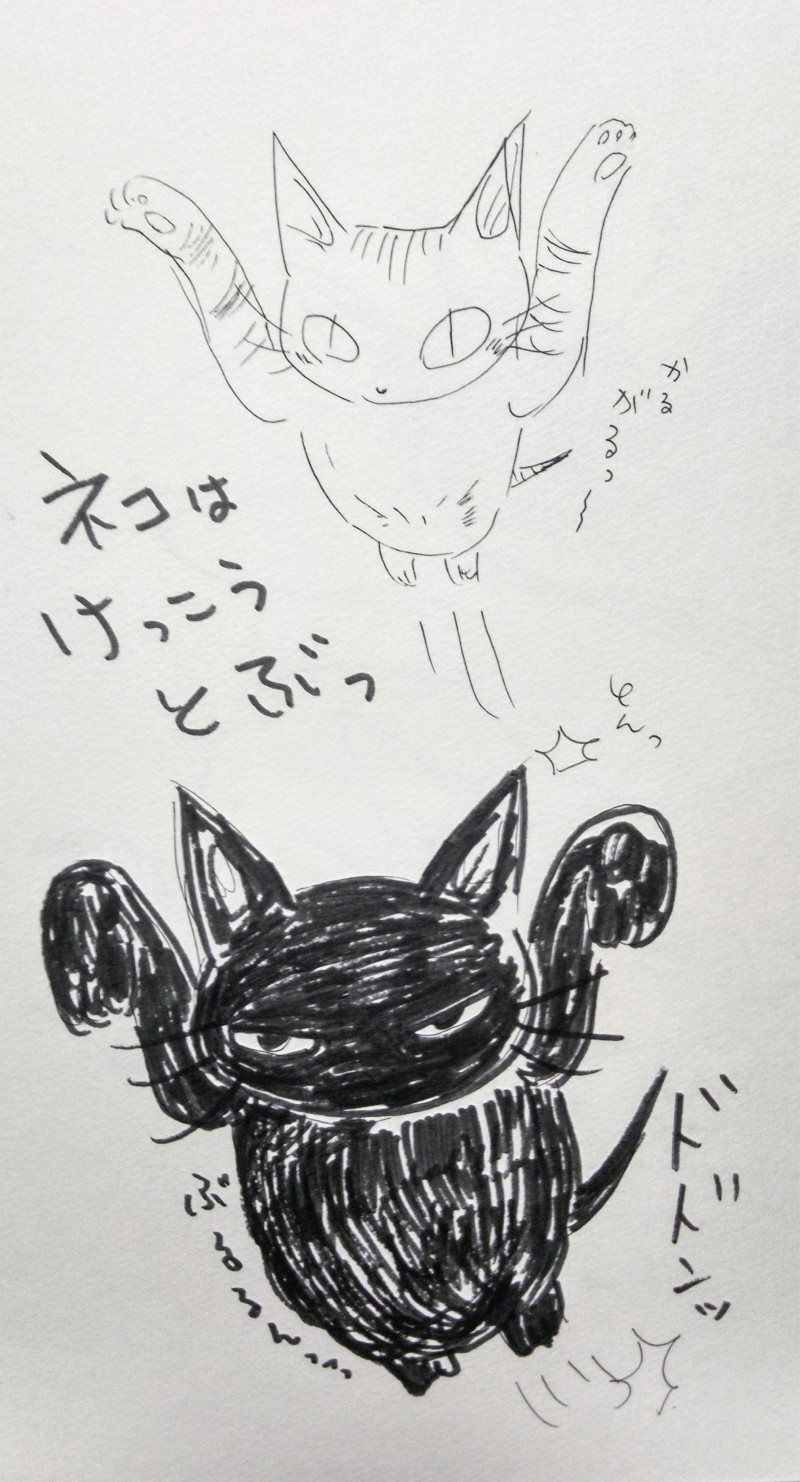 かる
がるっ
ネコは
けっこう
とぶっ
とんっ
ドドンッ
ぶるるんっ